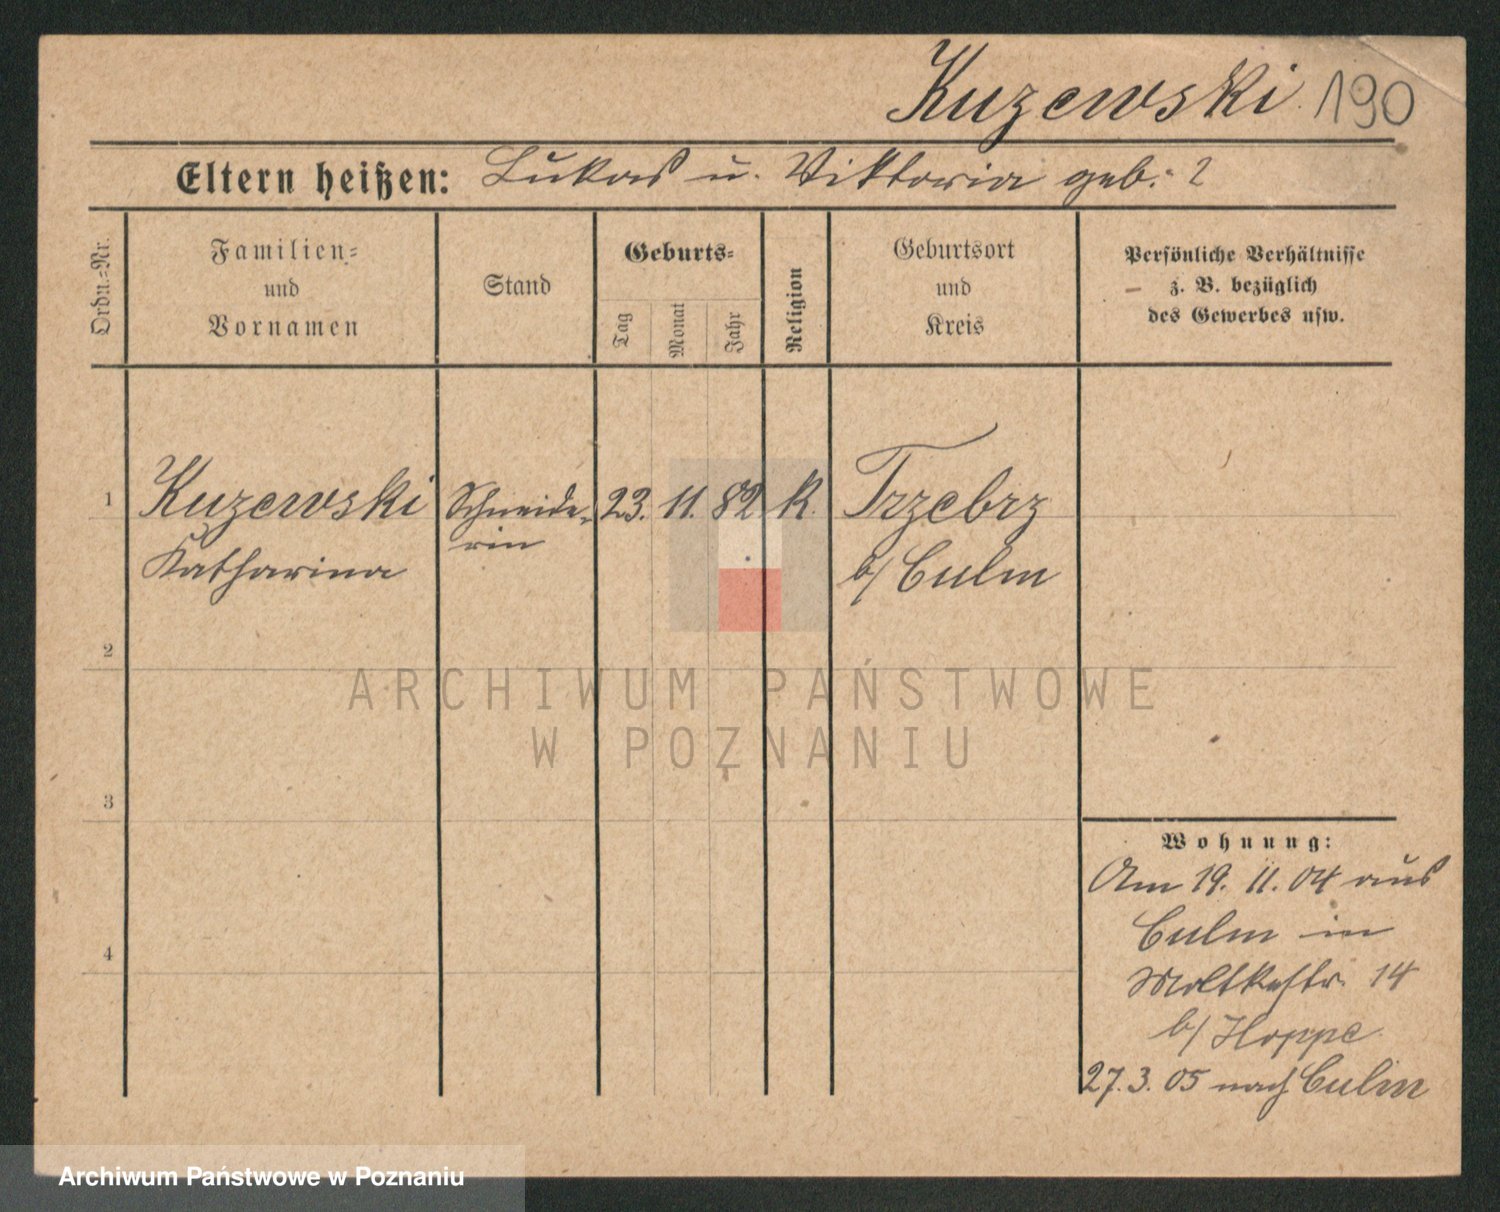 Kuzewski 190
Eltern heißen: Lukas u. Viktoria geb: ?
Ordn.=Nr.
Familien=
und
Vornamen
Stand
Geburts=
Tag
Monat
Jahr
Religion
Geburtsort
und
Kreis
Persönliche Verhältnisse
z. B. bezüglich
des Gewerbes usw.
1 Kuzewski Schneide- 23. 11. 82 K. Trzebcz
Katharina rin b/ Culm
2
3
4
Wohnung:
Am 19. 11. 04 aus
Culm in
Moltkestr. 14
b/ Hoppe
27. 3. 05 nach Culm
ARCHIWUM PAŃSTWOWE
W POZNANIU
Archiwum Państwowe w Poznaniu